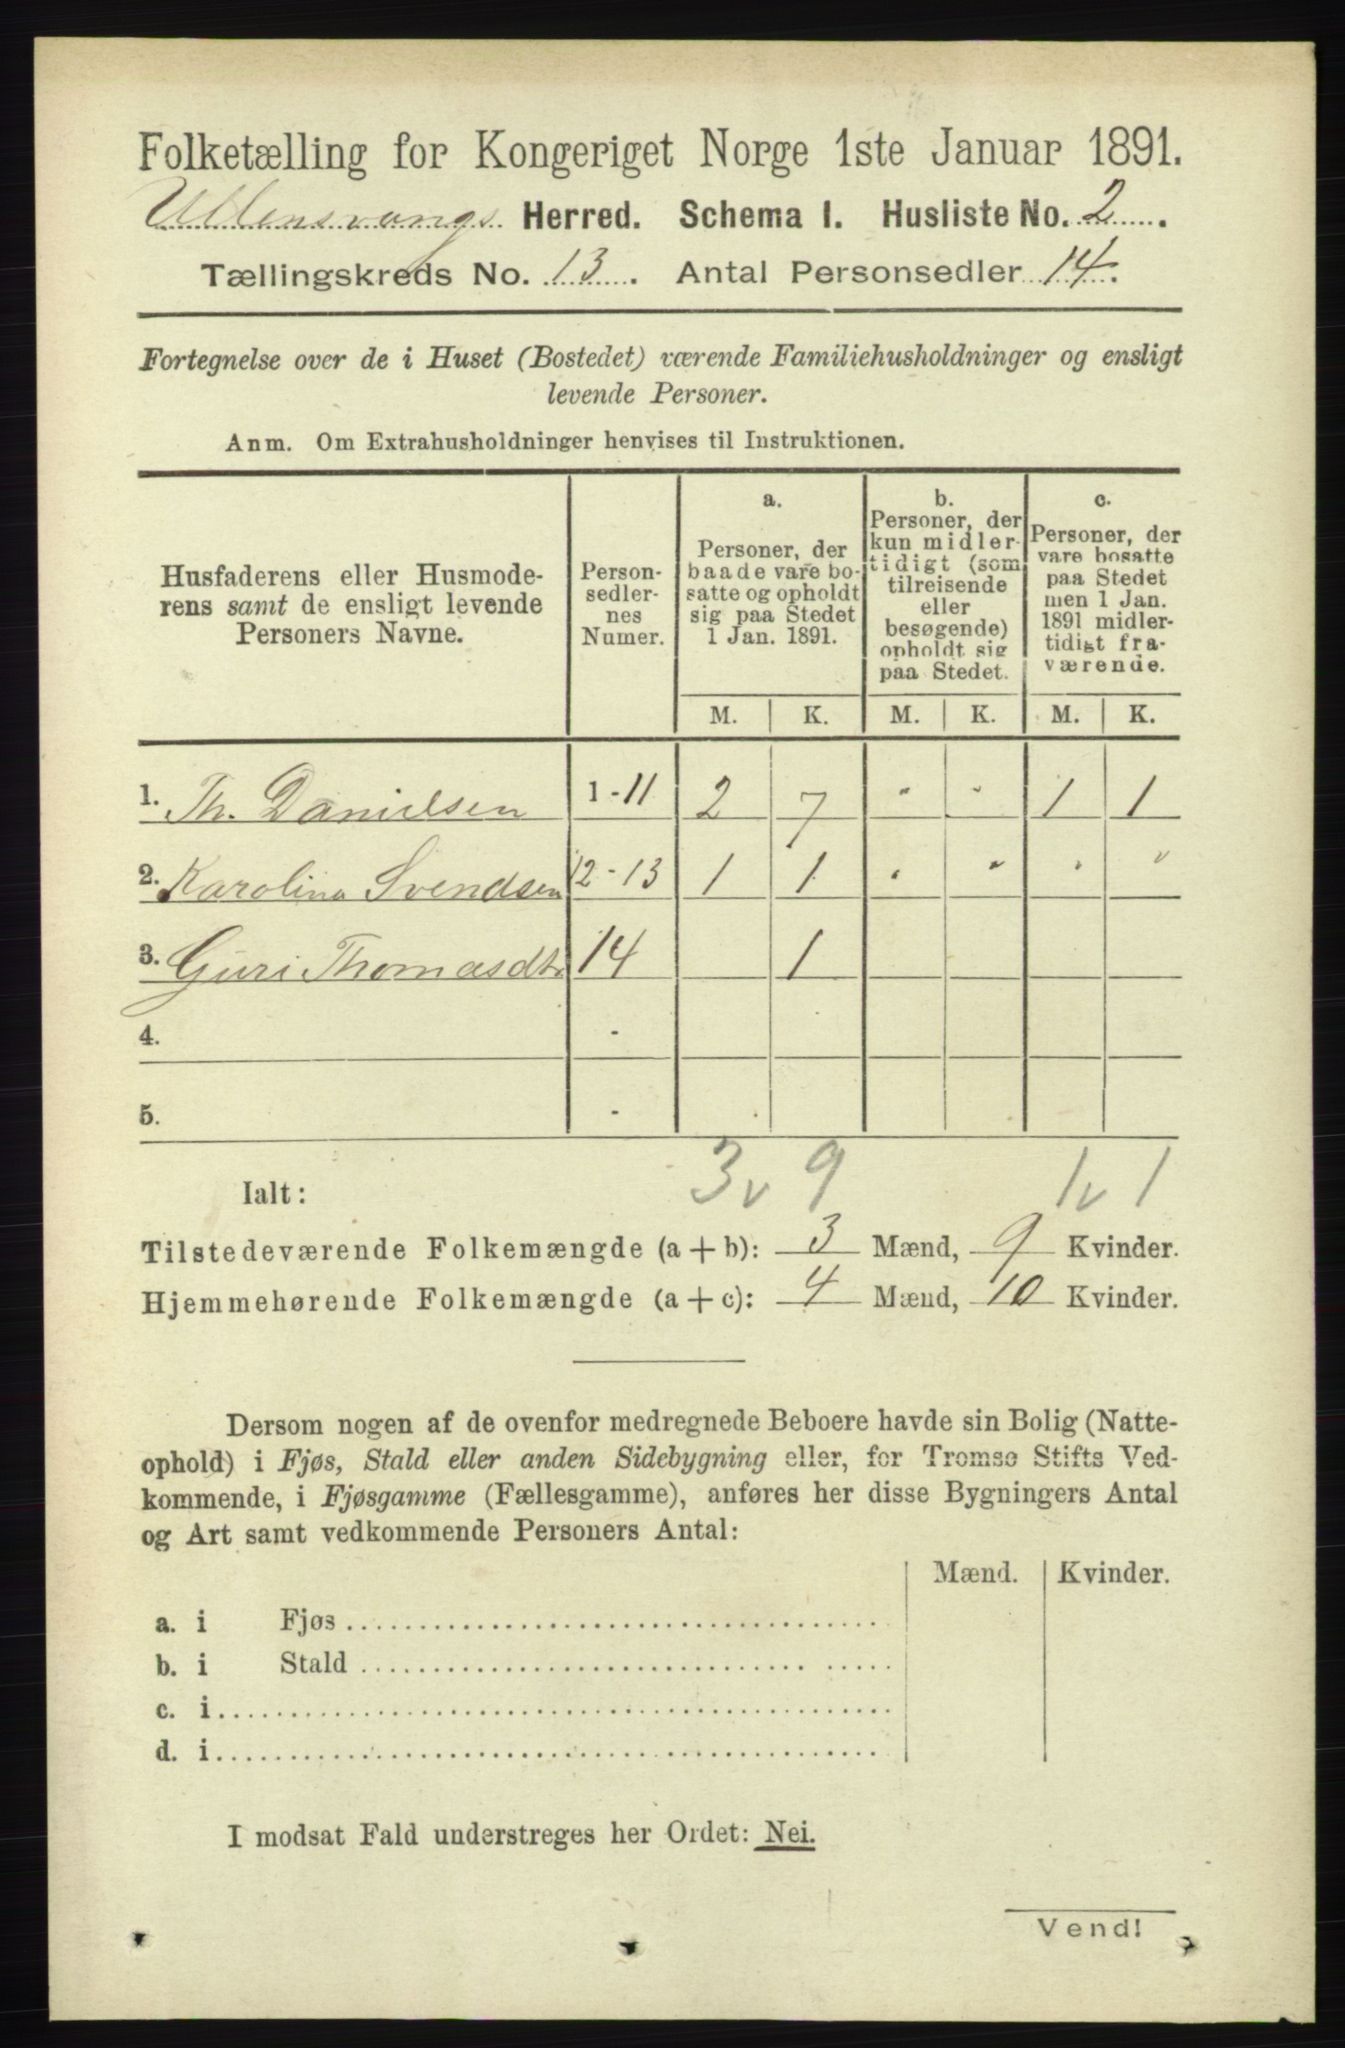 Folketælling for Kongeriget Norge 1ste Januar 1891.
Ullensvangs Herred. Schema I. Husliste No. 2.
Tællingskreds No. 13. Antal Personsedler 14.
Fortegnelse over de i Huset (Bostedet) værende Familiehusholdninger og ensligt
levende Personer.
Anm. Om Extrahusholdninger henvises til Instruktionen.
Husfaderens eller Husmode-
rens samt de ensligt levende
Personers Navne.
Person-
sedler-
nes
Numer.
a.
Personer, der
baade vare bo-
satte og opholdt
sig paa Stedet
1 Jan. 1891.
b.
Personer, der
kun midler-
tidigt (som
tilreisende
eller
besøgende)
opholdt sig
paa Stedet.
c.
Personer, der
vare bosatte
paa Stedet
men 1 Jan.
1891 midler-
tidigt fra-
værende.
M. K. M. K. M. K.
1. Th. Danielsen 1-11 2 7 " " 1 1
2. Karolina Svendsen 12-13 1 1 " " " "
3. Guri Thomasdtr 14 1
4. -
5. -
Ialt: 3 v 9 1 v 1
Tilstedeværende Folkemængde (a + b): 3 Mænd, 9 Kvinder.
Hjemmehørende Folkemængde (a + c): 4 Mænd, 10 Kvinder.
Dersom nogen af de ovenfor medregnede Beboere havde sin Bolig (Natte-
ophold) i Fjøs, Stald eller anden Sidebygning eller, for Tromsø Stifts Ved-
kommende, i Fjøsgamme (Fællesgamme), anføres her disse Bygningers Antal
og Art samt vedkommende Personers Antal:
Mænd. Kvinder.
a. i Fjøs
b. i Stald
c. i
d. i
I modsat Fald understreges her Ordet: Nei.
Vend!